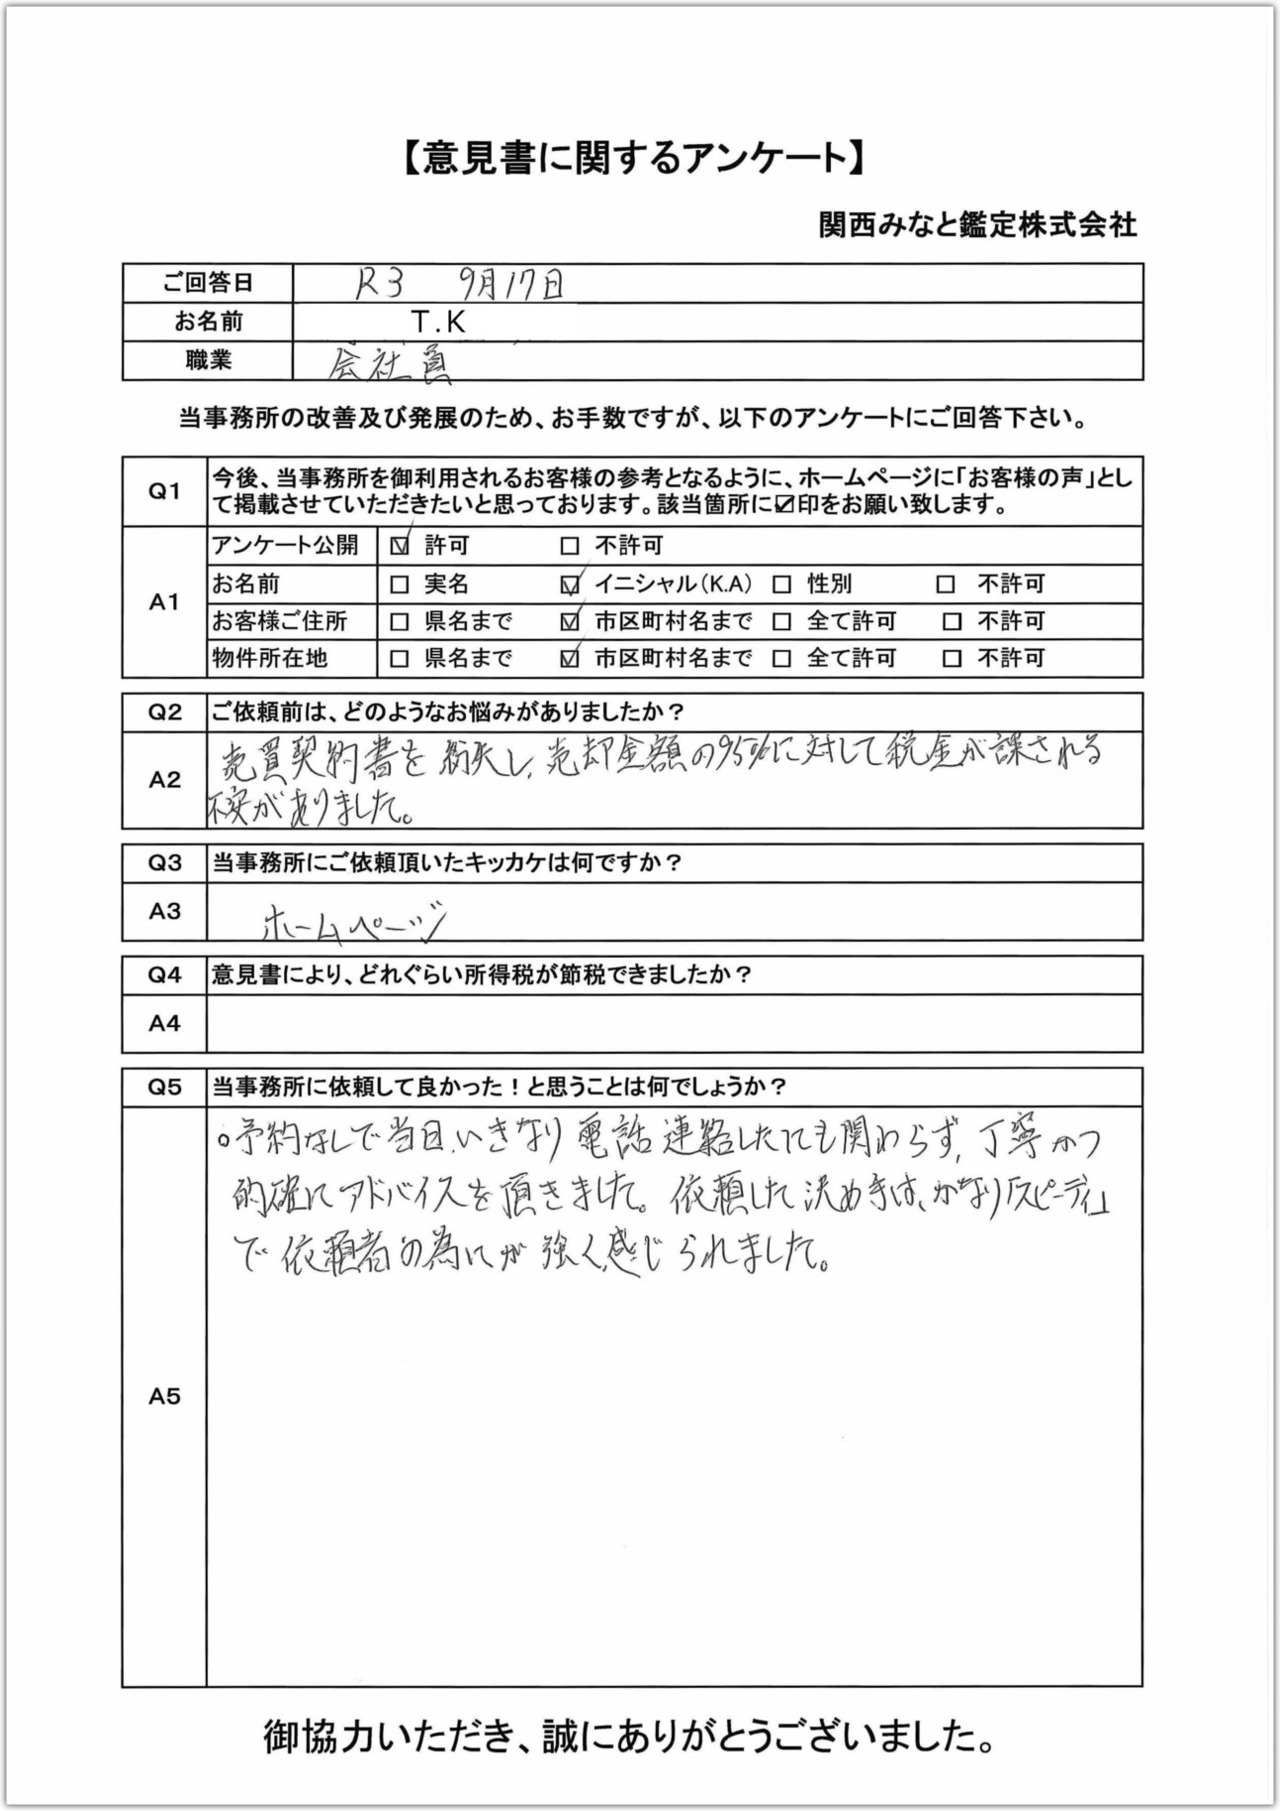 【意見書に関するアンケート】
関西みなと鑑定株式会社
ご回答日 R3 9月17日
お名前 T.K
職業 会社員
当事務所の改善及び発展のため、お手数ですが、以下のアンケートにご回答下さい。
Q1 今後、当事務所を御利用されるお客様の参考となるように、ホームページに「お客様の声」とし
て掲載させていただきたいと思っております。該当箇所に☑印をお願い致します。
A1
アンケート公開 ☑ 許可 □ 不許可
お名前 □ 実名 ☑ イニシャル(K.A) □ 性別 □ 不許可
お客様ご住所 □ 県名まで ☑ 市区町村名まで □ 全て許可 □ 不許可
物件所在地 □ 県名まで ☑ 市区町村名まで □ 全て許可 □ 不許可
Q2 ご依頼前は、どのようなお悩みがありましたか?
A2 売買契約書を紛失し、売却金額の95%に対して税金が課される
不安がありました。
Q3 当事務所にご依頼頂いたキッカケは何ですか?
A3 ホームページ
Q4 意見書により、どれぐらい所得税が節税できましたか?
A4
Q5 当事務所に依頼して良かった!と思うことは何でしょうか?
A5
○予約なしで当日、いきなり電話連絡したにも関わらず、丁寧かつ
的確にアドバイスを頂きました。依頼した決め手は、かなり「スピーディ」
で依頼者の為にが強く感じられました。
御協力いただき、誠にありがとうございました。